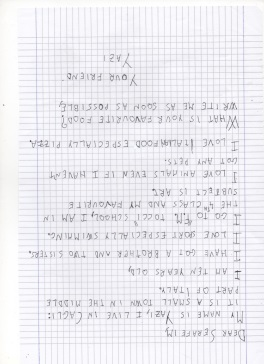 DEAR SERAFEIM,
MY NAME IS YAZI, I LIVE IN CAGLI:
IT IS A SMALL TOWN IN THE MIDDLE
PART OF ITALY.
I AM TEN YEARS OLD,
I HAVE GOT A BROTHER AND TWO SISTERS
I LOVE SPORT ESPECIALLY SWIMMING.
I GO TO SCHOOL, I AM IN
THE 4TH CLASS AND MY FAVOURITE
SUBJECT IS ART.
I LOVE ANIMALS EVEN IF I HAVENT
GOT ANY PETS.
I LOVE ITALIAN FOOD ESPECIALLY PIZZA.
WHAT IS YOUR FAVOURITE FOOD?
WRITE ME AS SOON AS POSSIBLE,
YOUR FRIEND
YAZI